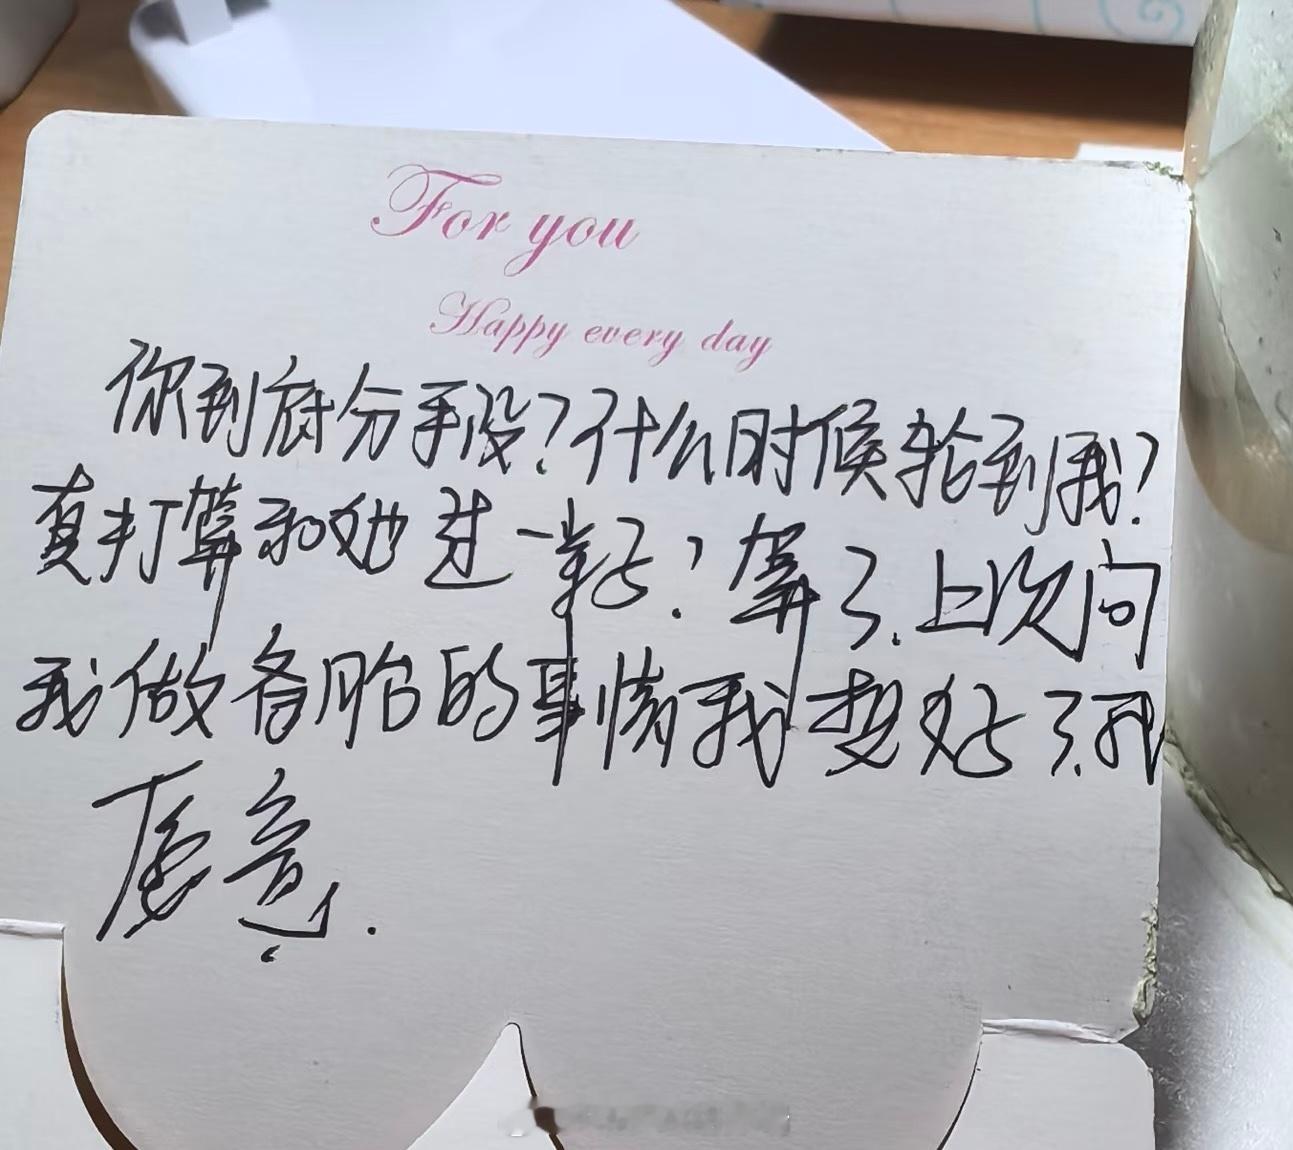 For you
Happy every day
你到底分手没?什么时候轮到我?
真打算和她过一辈子?算了.上次问
我做备胎的事情我想好了.我
愿意.